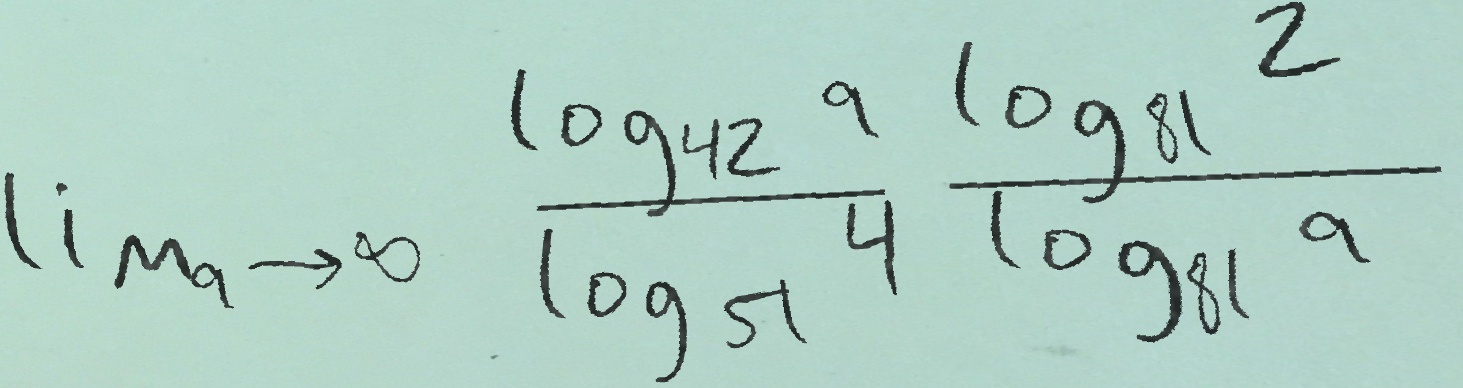 \lim_{a \to \infty} \frac{\log_{42} a}{\log_{51} 4} \frac{\log_{81} 2}{\log_{81} a}